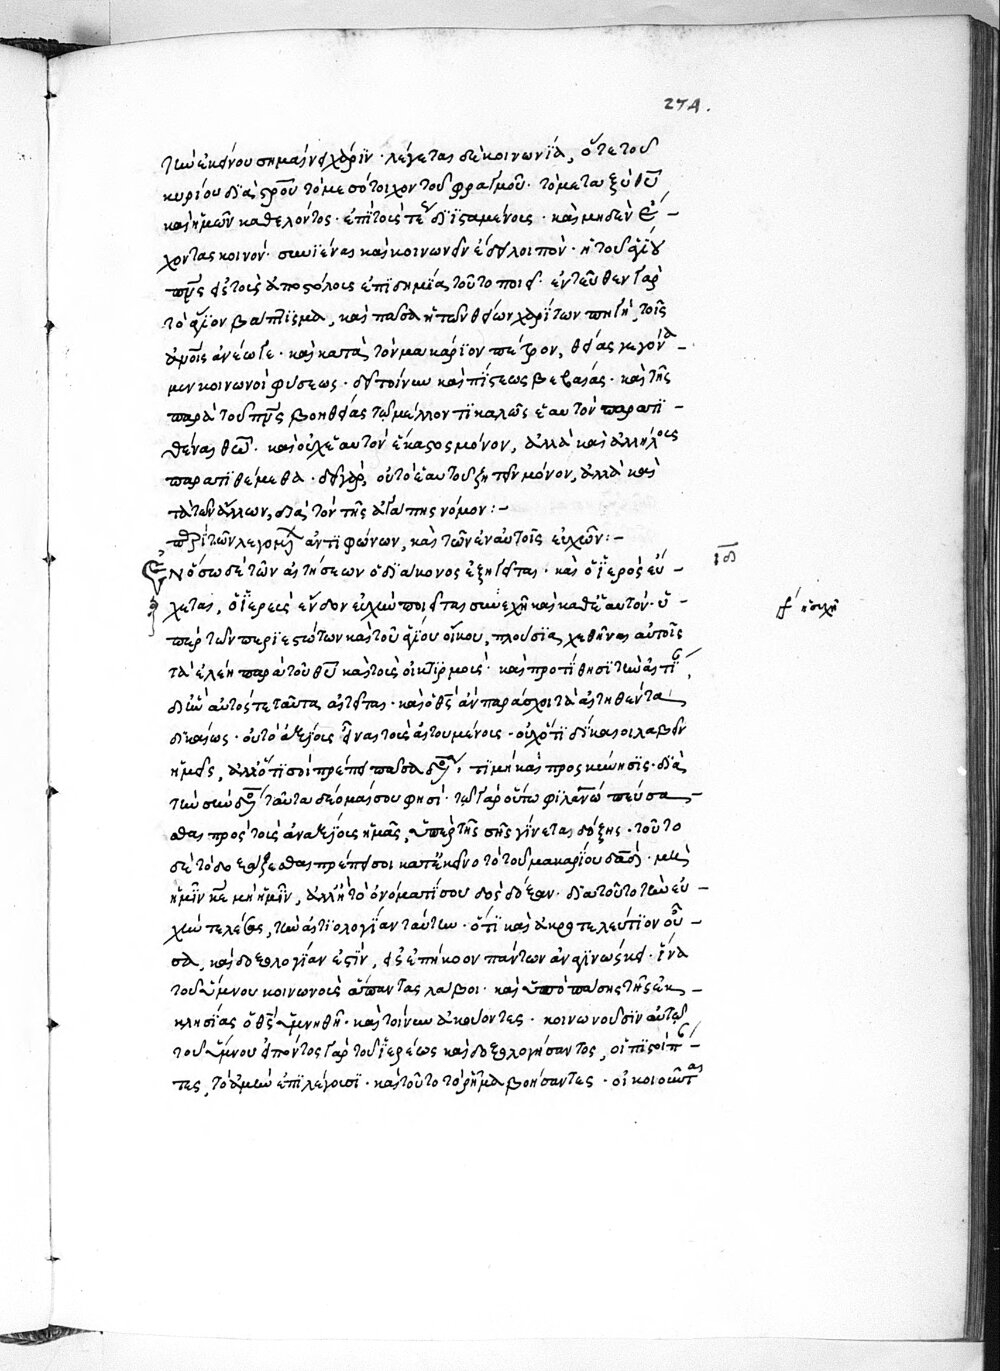 274.
τὴν ἐκείνου σημαίνει χάριν· λέγεται δὲ κοινωνία, ὅτε τοῦ
κυρίου διὰ σ̅ρ̅οῦ τὸ μεσότοιχον τοῦ φραγμοῦ· τὸ μεταξὺ θ̅υ̅
καὶ ἡμῶν καθελόντος· ἐπὶ τοῖς διϊσταμένοις· καὶ μηδὲν ἔ-
χοντας κοινόν· συνϊέναι καὶ κοινωνεῖν ἔδει λοιπὸν· ἡ τοῦ ἁγίου
π̅ν̅ς̅ εἰς τοὺς ἀποστόλους ἐπιδημία, τοῦτο ποιεῖ· ἐντεῦθεν γὰρ
τὸ ἅγιον βάπτισμα, καὶ πᾶσα ἡ τῶν θείων χαρίτων πηγὴ, τοῖς
ἀν̅οις ἀνέωγε· καὶ κατὰ τὸν μακάριον πέτρον, θείας γεγόνα-
μεν κοινωνοὶ φύσεως· δεῖ τοίνυν καὶ πίστεως βεβαίας· καὶ τῆς
παρὰ τοῦ π̅ν̅ς̅ βοηθείας τῷ μέλλοντι καλῶς ἑαυτὸν παρατι-
θέναι θ̅ω̅· καὶ οὐχ ἑαυτὸν ἕκαστος μόνον, ἀλλὰ καὶ ἀλλήλους
παρατιθέμεθα· δεῖ γὰρ, οὐ τὸ ἑαυτοῦ ζητεῖν μόνον, ἀλλὰ καὶ
τὰ τῶν ἄλλων, διὰ τὸν τῆς ἀγάπης νόμον:-
περὶ τῶν λεγομένων ἀντιφώνων, καὶ τῶν ἐν αὐτοῖς εὐχῶν:- ιδ
Ἐν ὅσῳ δὲ τῶν αἰτήσεων ὁ διάκονος ἐξηγεῖται· καὶ ὁ ἱερὸς εὔ-
χεται, ὁ ἱερεὺς ἔνδον εὐχὴν ποιεῖται συνεχῆ καὶ καθ' ἑαυτὸν· ὑ-
πὲρ τῶν περιεστώτων καὶ τοῦ ἁγίου οἴκου, πλούσια, χεθῆναι αὐτοῖς
τὰ ἐλέη παρὰ τοῦ θ̅υ̅ καὶ τοὺς οἰκτιρμούς· καὶ προτίθησι τὴν αἰτίαν,
δι' ἣν αὐτός τε ταῦτα αἰτεῖται· καὶ ὁ θ̅ς̅ ἂν παράσχοι τὰ αἰτηθέντα
δικαίως· οὐ τὸ ἀξίους εἶναι τοὺς αἰτουμένους· οὐχ ὅτι δίκαιοι λαβεῖν
ἡμεῖς, ἀλλ' ὅτι σοὶ πρέπει πᾶσα δόξα, τιμὴ καὶ προσκύνησις· διὰ
τὴν σὴν δόξαν ταῦτα δέομαί σου φησί· τῷ γὰρ οὕτω φιλανω πεύσα-
σθαι πρὸς τοὺς ἀναξίους ἡμᾶς, ὑπὲρ τῆς σῆς γίνεται δόξης· τοῦτο
δὲ τὸ δοξάζεσθαι πρέπει σοι κατ' ἐκεῖνο τὸ τοῦ μακαρίου δα̅δ̅· μὴ
ἡμῖν κ̅ε̅ μὴ ἡμῖν, ἀλλ' ἢ τῷ ὀνόματί σου δὸς δόξαν· διὰ τοῦτο τὴν εὐ-
χὴν τελέσας, τὴν αἰτιολογίαν ταύτην· ὅτι καὶ ἀκροτελεύτιον οὖ-
σα, καὶ δοξολογίαν ἐστὶν, εἰς ἐπήκοον πάντων ἀναγινώσκει· ἵνα
τοῦ ὕμνου κοινωνοὺς ἅπαντας λάβοι· καὶ ὑπὸ πάσης τῆς ἐκ-
κλησίας ὁ θ̅ς̅ ὑμνηθῇ· καὶ τοίνυν ἀκούοντες· κοινωνοῦσιν αὐτῷ
τοῦ ὕμνου εἰπόντος γὰρ τοῦ ἱερέως καὶ δοξολογήσαντος, οἱ πιστοὶ πάν-
τες, τὸ ἀμὴν ἐπιλέγουσι· καὶ τοῦτο τὸ ῥῆμα βοήσαντες· οἰκειοῦνται